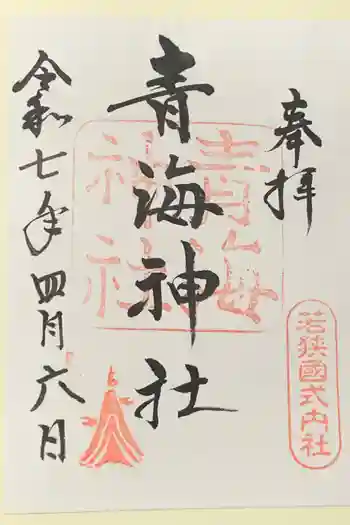 奉拝
青海神社
青海
神社
令和七年四月六日
若狭國式内社